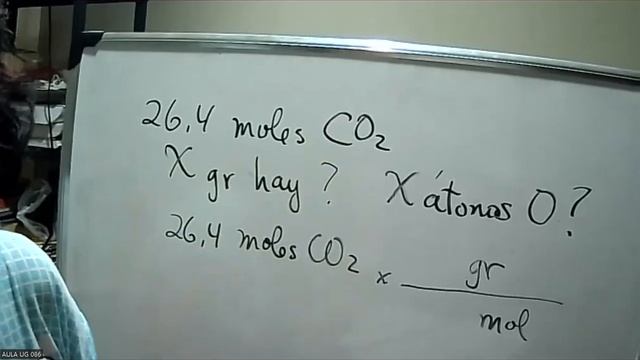 26,4 moles CO₂
X gr hay ? X átonos O?
26,4 moles CO₂ x gr
mol
AULA UG 066